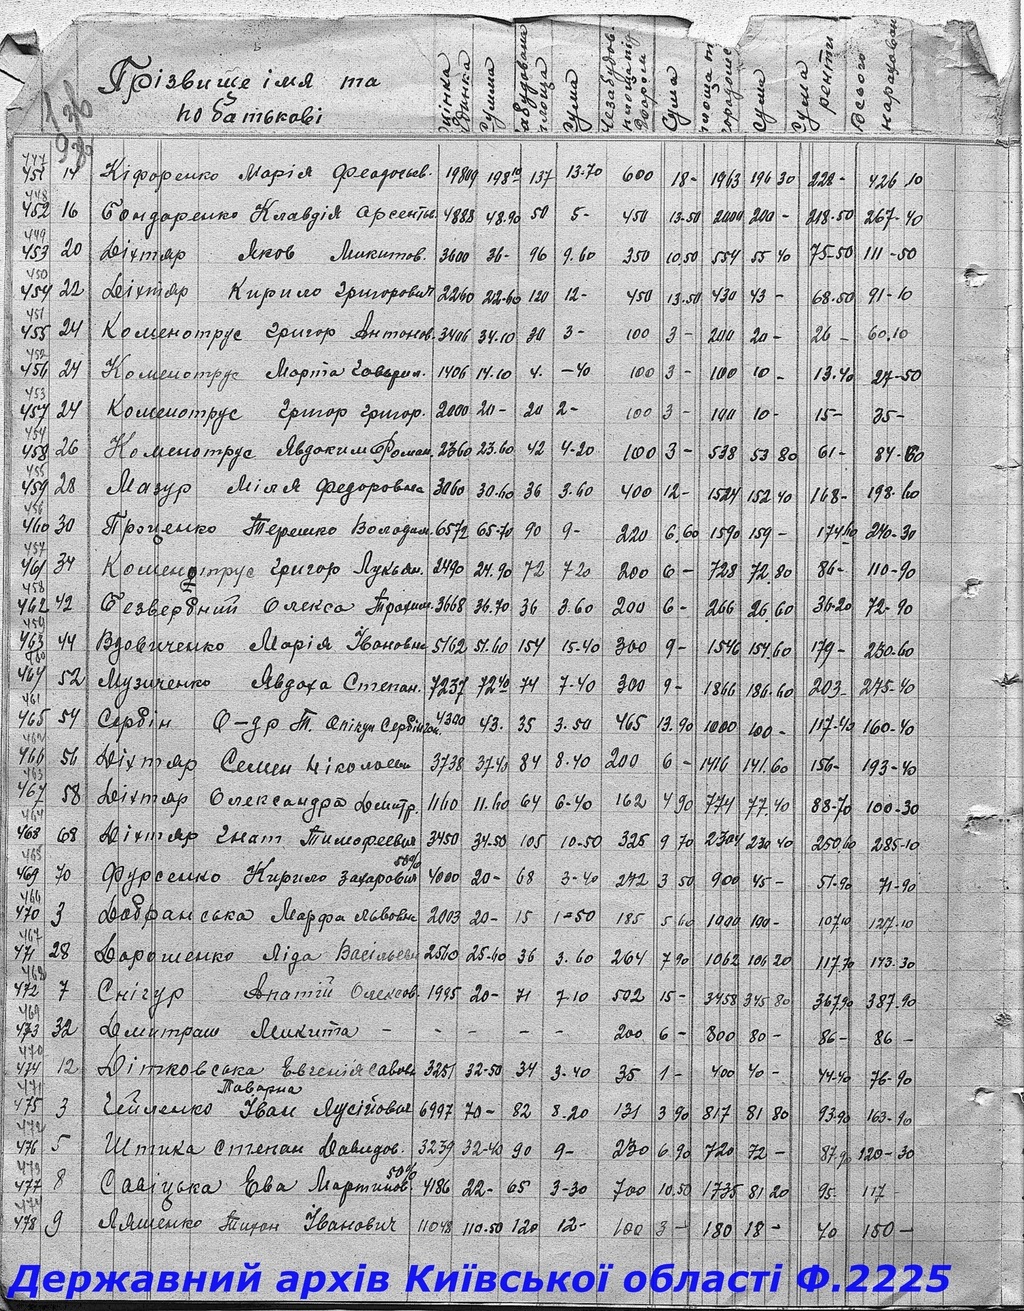 Прізвище імя та
по батькові
Оцінка будинка Сумма Забудована площа Сума Незабудов. площа під двором Сума площа п. Сума Сума ренти Всього нараховано
447 451 14 Кіфоренко Марія Феодосьев. 19809 198 10 137 13-70 600 18- 1963 196 30 228- 426 10
448 452 16 Бондаренко Клавдія Арсентьв. 4888 48.90 50 5- 450 13-50 2000 200 - 218-50 267-40
449 453 20 Діхтяр Яков Микитов. 3600 36- 96 9.60 350 10 50 554 55 40 75-50 111-50
450 454 22 Діхтяр Кирило Григорович 2260 22-60 120 12- 450 13.50 430 43 - 68-50 91-10
451 455 24 Коменотрус Григор Антонов. 3406 34.10 30 3- 100 3- 200 20- 26 - 60.10
452 456 24 Коменотрус Марта Гаврил. 1406 14.10 4. -40 100 3- 100 10 - 13.40 27-50
453 457 24 Коменотрус Григор Григор. 2000 20- 20 2- 100 3- 100 10- 15- 35-
454 458 26 Коменотрус Явдоким Роман. 2360 23.60 42 4-20 100 3- 538 53 80 61- 84-60
455 459 28 Мазур Міля Федоровна 3060 30-60 36 3.60 400 12- 1524 152 40 168- 198-60
456 460 30 Проценко Терешко Володим. 6572 65-70 90 9- 220 6.60 1590 159 - 174 60 240-30
457 461 34 Коменотрус Григор Лукьян. 2490 24.90 72 7-20 200 6- 728 72.80 86- 110-90
458 462 42 Безвербний Олекса Трохим. 3668 36.70 36 3.60 200 6- 266 26.60 36-20 72-90
459 463 44 Вдовиченко Марія Івановн. 5162 51.60 154 15-40 300 9- 1546 154.60 179- 230-60
460 464 52 Музиченко Явдоха Степан. 7237 72 40 74 7-40 300 9- 1866 186.60 203- 275-40
461 465 54 Сербін О-др Т. Опікун Сербін 4300 43. 35 3.50 465 13.90 1000 100 - 117-40 160-40
462 466 56 Діхтяр Семен Ніколаєв 3738 37-40 84 8.40 200 6 - 1416 141.60 156- 193-40
463 467 58 Діхтяр Олександра Дмитр. 1160 11.60 64 6-40 162 4 90 774 77.40 88-70 100-30
464 468 68 Діхтяр Гнат Тимофеевич 3450 34-50 105 10-50 325 9 70 2304 230 40 250 60 285-10
465 469 70 Фурсенко Кирило Захарович 50% 4000 20- 68 3-40 242 3 50 900 45- 51-90 71-90
466 470 3 Добранська Марфа Львовн 2003 20- 15 1-50 185 5 60 1000 100- 107.10 127-10
467 471 28 Дорошенко Ліда Васільевн 2560 25-60 36 3.60 264 7 90 1062 106 20 117 70 143-30
468 472 7 Снігур Анатій Олексов. 1995 20- 71 7-10 502 15- 3458 345 80 367.90 387.90
469 473 32 Дмитраш Микита - - - - - 200 6- 800 80- 86- 86 -
470 474 12 Дітковська Евгенія Савовн 3251 32-50 34 3-40 35 1- 400 40- 44-40 76-90
471 475 3 Чейленко Товарна Іван Мусійович 6997 70- 82 8.20 131 3 90 817 81 80 93-90 163-90
472 476 5 Штика Степан Давидов. 3239 32-40 90 9- 230 6.90 720 72 - 87.90 120-30
473 477 8 Савіцька Ева Мартинов. 50% 4186 22- 65 3-30 700 10.50 1735 81 20 95- 117 -
474 478 9 Ляшенко Тихон Іванович 11048 110.50 120 12- 100 3- 180 18- 40 150-
Державний архів Київської області Ф.2225